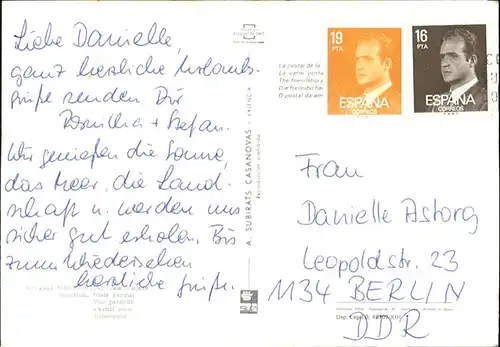 Liebe Danielle,
ganz herzliche Urlaubs-
grüße senden Dir
+ Stefan.
Wir genießen die Sonne,
das Meer, die Land-
schaft u. werden uns
sicher gut erholen. Bis
zum Wiedersehen
herzliche Grüße.
A. SUBIRATS CASANOVAS - VALENCIA
19
PTA
ESPAÑA
CORREOS
16
PTA
ESPAÑA
CORREOS
La postal de la
La carte posta
The friendship
Die Freundschaf
O postal da am
Frau
Danielle Astorg
Leopoldstr. 23
1134 BERLIN
DDR